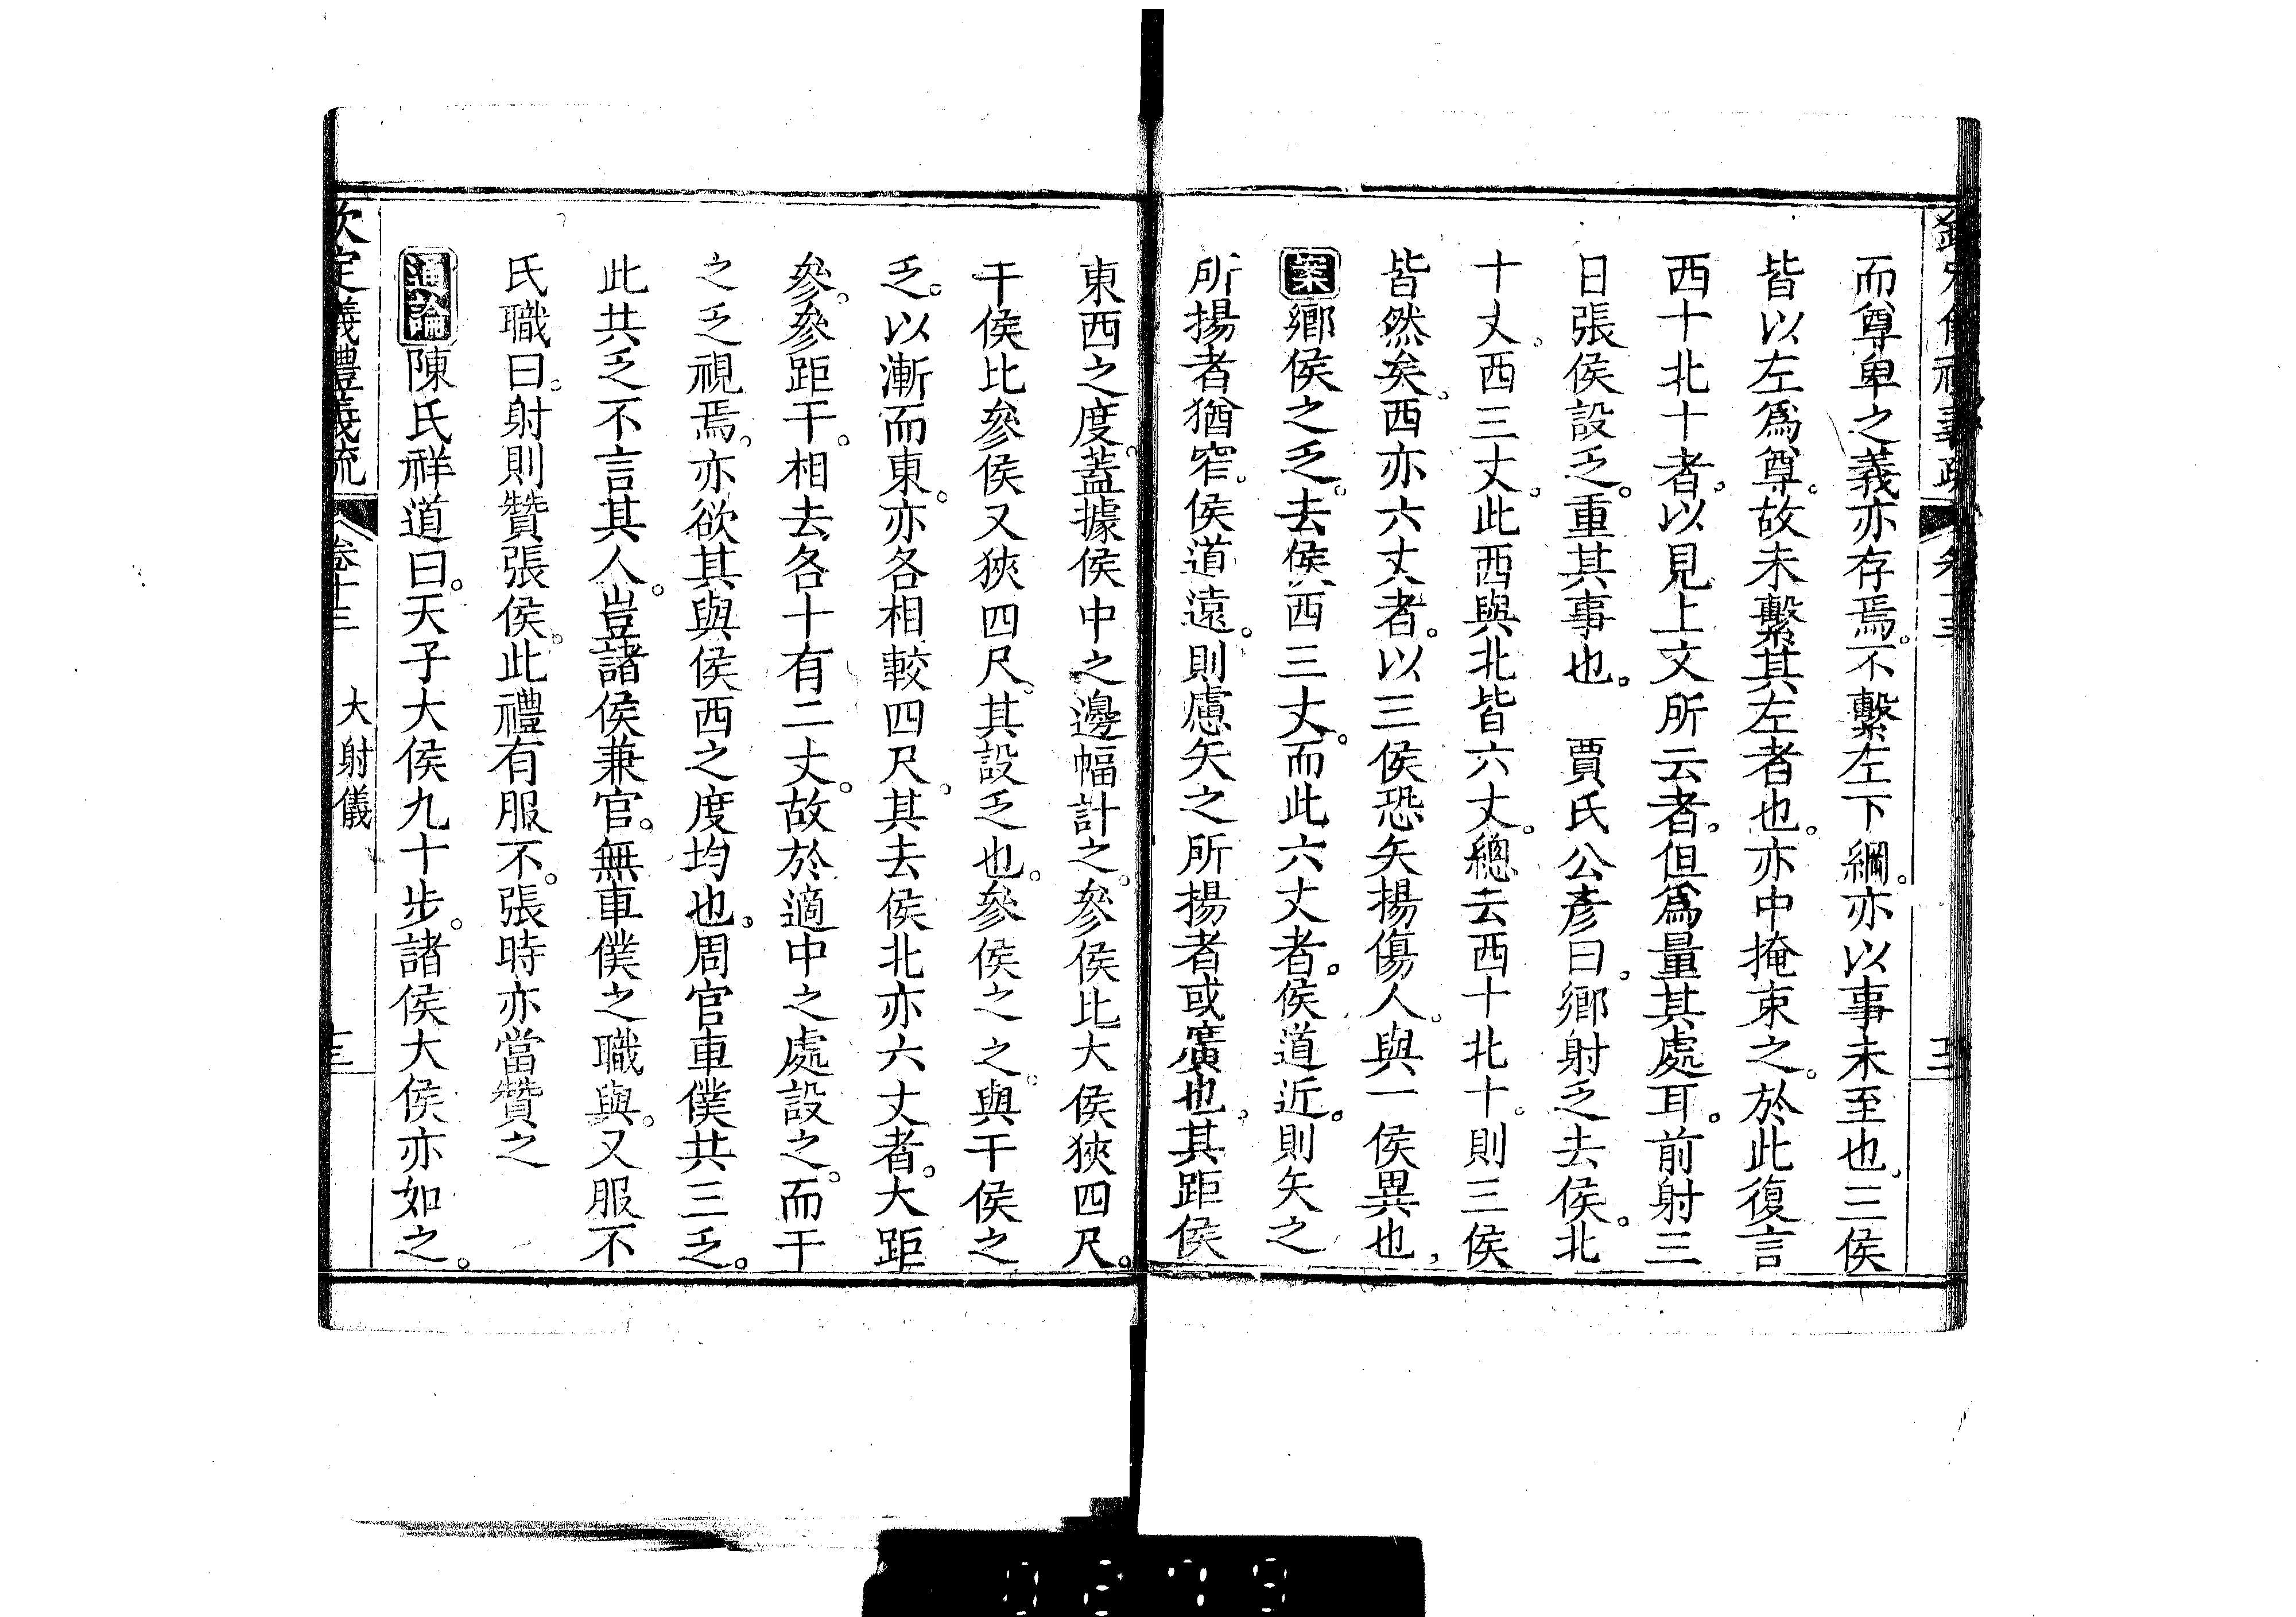 而尊卑之義亦存焉。不繫左下綱。亦以事未至也。三侯
皆以左爲尊。故未繫其左者也。亦中掩束之。於此復言
西十北十者。以見上文所云者。但爲量其處耳。前射三
日張侯設乏。重其事也。 賈氏公彥曰。鄉射乏去侯。北
十丈。西三丈。此西與北皆六丈。總云西十北十。則三侯
皆然矣。西亦六丈者。以三侯恐矢揚傷人。與一侯異也。
案鄉侯之乏。去侯西三丈。而此六丈者。侯道近。則矢之
所揚者猶窄。侯道遠。則慮矢之所揚者或廣也。其距侯
東西之度。蓋據侯中之邊幅計之。參侯比大侯狹四尺。
干侯比參侯又狹四尺。其設乏也。參侯之之。與干侯之
乏。以漸而東。亦各相較四尺。其去侯北亦六丈者。大距
參。參距干。相去各十有二丈。故於適中之處設之。而干
之乏視焉。亦欲其與侯西之度均也。周官車僕共三乏。
此共乏不言其人。豈諸侯兼官。無車僕之職與。又服不
氏職曰。射則贊張侯。此禮有服不。張時亦當贊之
通論陳氏祥道曰。天子大侯九十步。諸侯大侯亦如之。
欽定儀禮義疏 卷十三 大射儀